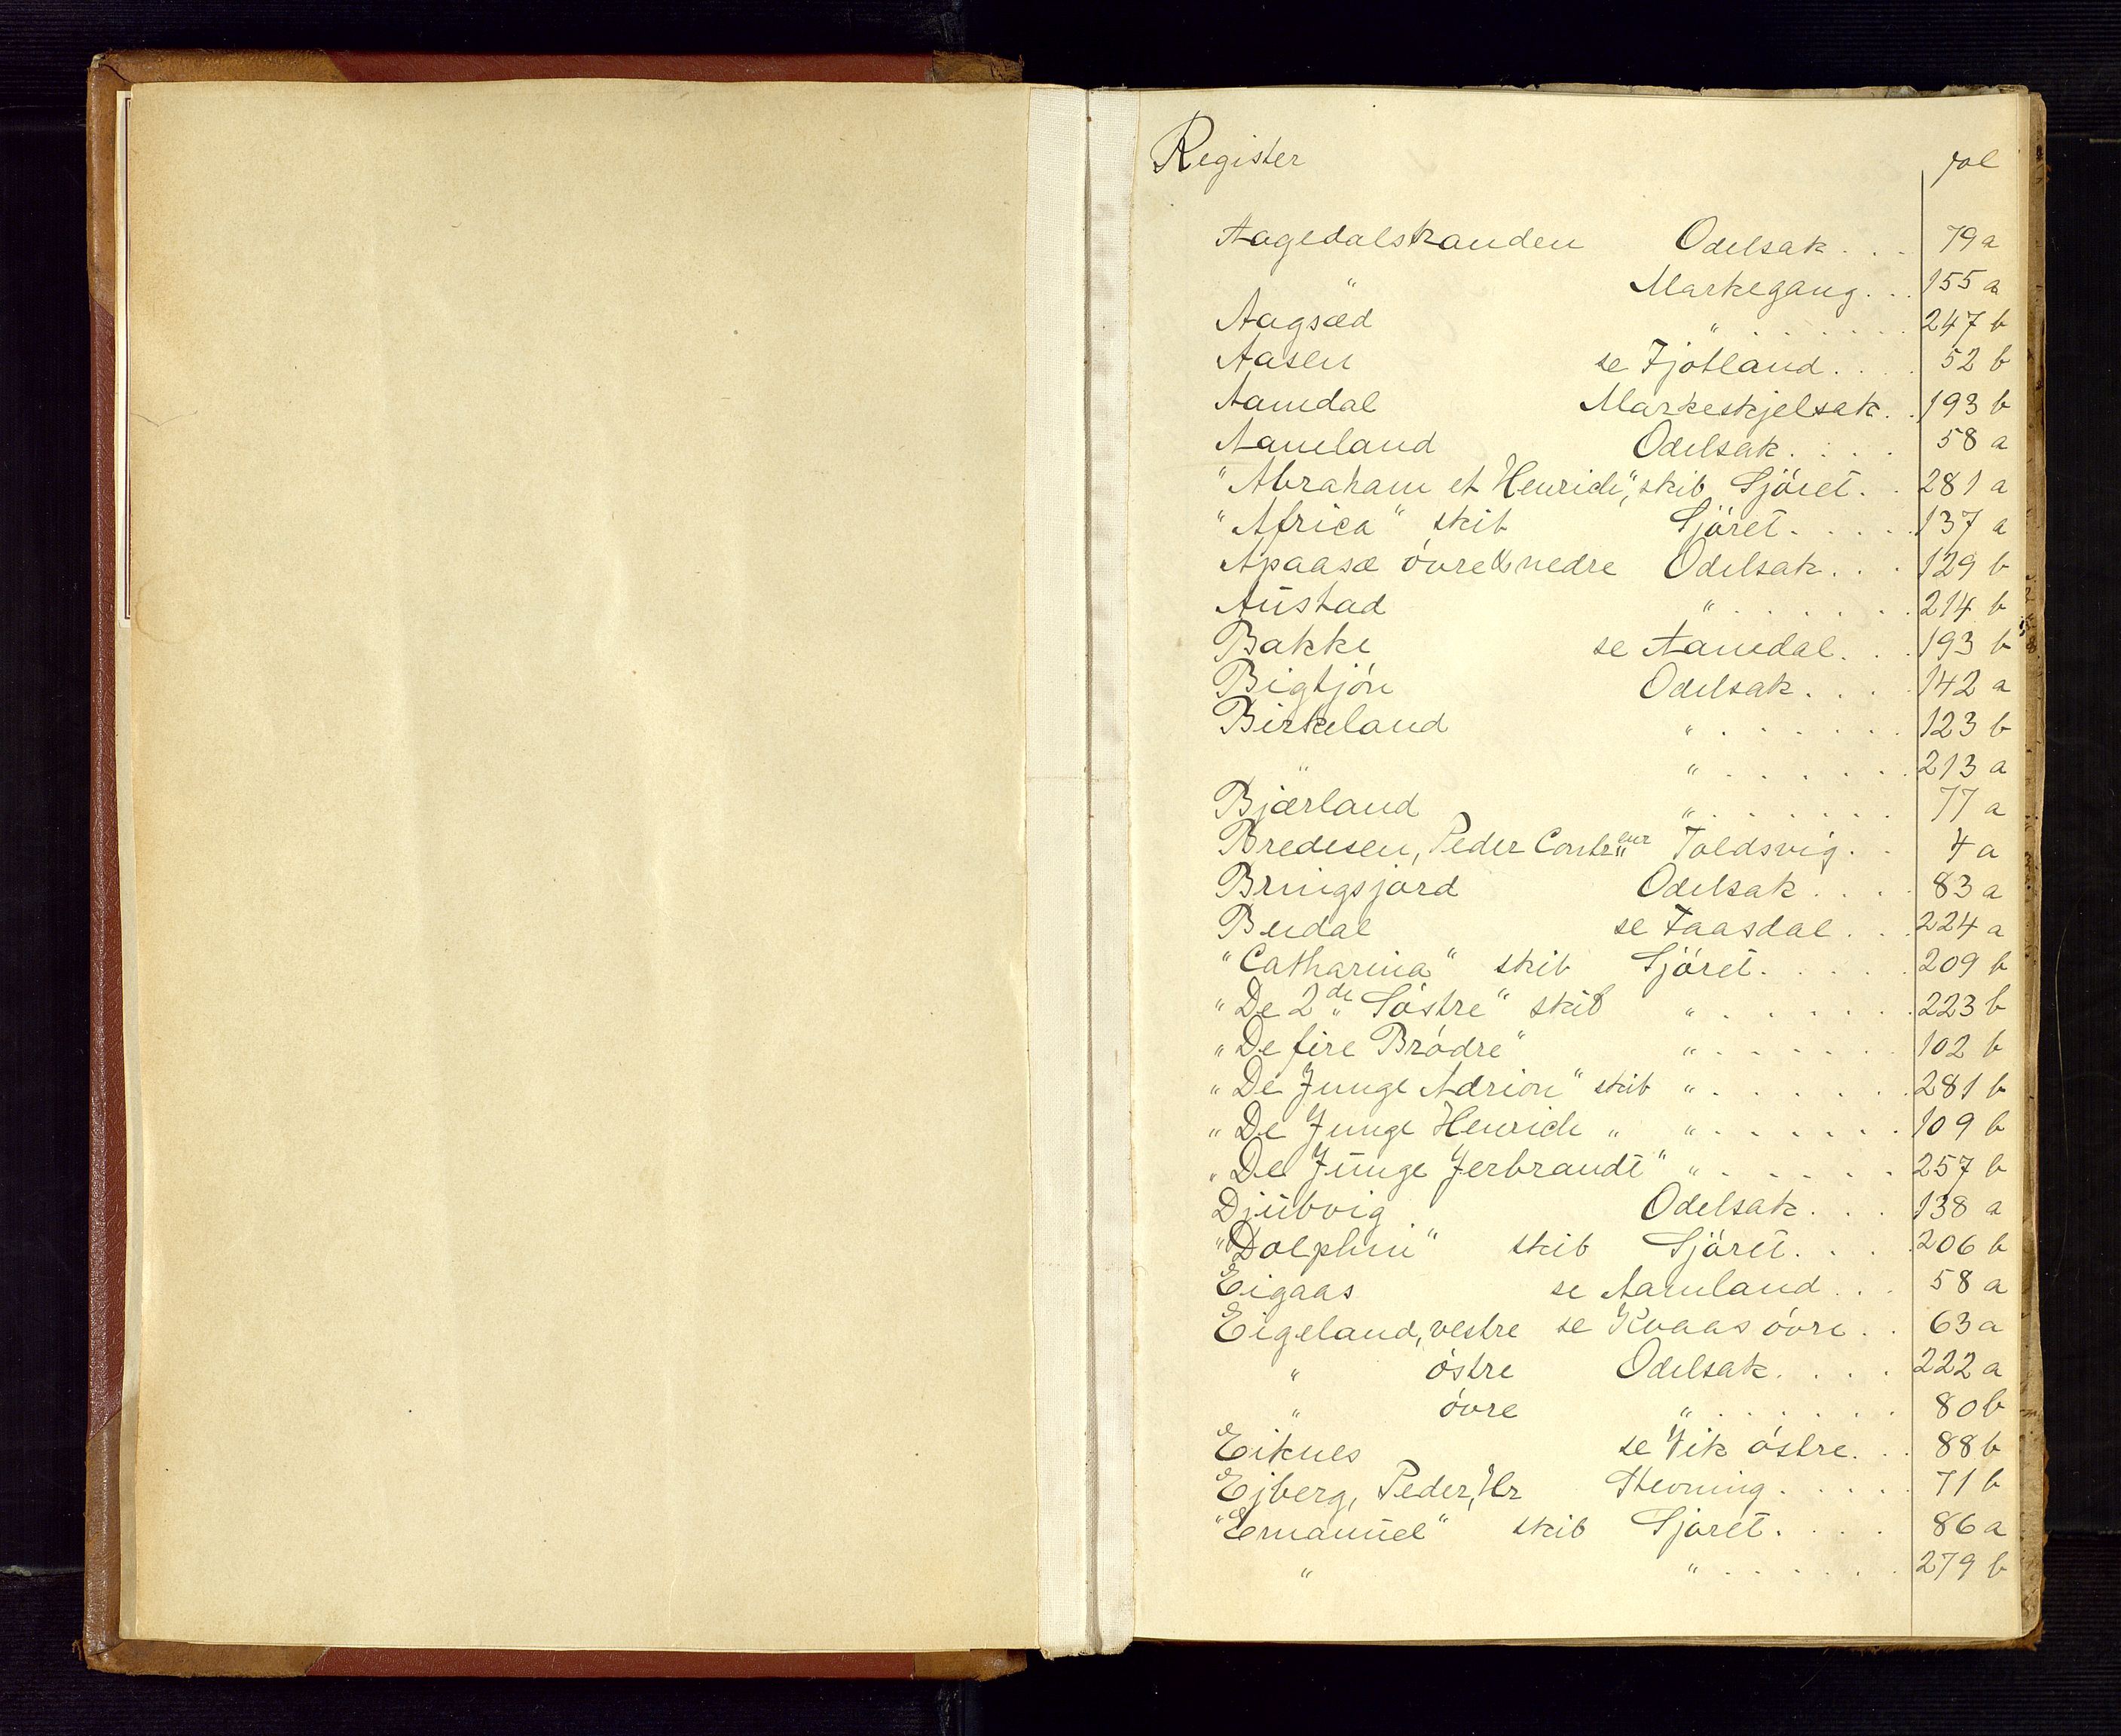 Register fol
Aagedalstranden Odelsak . . . 79 a
" Markegang . . . 155 a
Aagsæd " . . . . . . 247 b
Aasen se Fjotland . . . . 52 b
Aamdal Markeskjelsak . . 193 b
Aameland Odelsak . . . . 58 a
"Abraham et Henrich", skib Sjöret . . 281 a
"Africa" skib Sjöret . . . . . 137 a
Apaasæ övre & nedre Odelsak . . . 129 b
Aüstad " . . . . . . 214 b
Bakke se Aamdal . . . 193 b
Bigtjön Odelsak . . . . 142 a
Birkeland " . . . . . . 123 b
" " . . . . . . 213 a
Bjærland " . . . . . . 77 a
Bredesen, Peder Contr"eur Toldsvig . . 4 a
Bringsjord Odelsak . . . . 83 a
Budal se Faasdal . . . 224 a
"Catharina" skib Sjöret . . . . . 209 b
"De 2de Söstre" skib " . . . . . . 223 b
"De fire Brödre" " . . . . . . 102 b
"De Junge Adrion" skib " . . . . . . 281 b
"De Junge Henrich " " . . . . . . 109 b
"De Jünge Jerbrandt" " . . . . . . 257 b
Djübvig Odelsak . . . 138 a
"Dolphin" skib Sjöret . . . . 206 b
Eigaas se Aamland . . . 58 a
Eigeland, vestre se Kvaas övre . . 63 a
" östre Odelsak . . . . 222 a
" övre " . . . . . . 80 b
Eiknes se Vik östre . . 88 b
Ejberg, Peder, Hr Stevning . . . . . 71 b
"Emanüel" skib Sjöret . . . . 86 a
" " . . . . . . 279 b